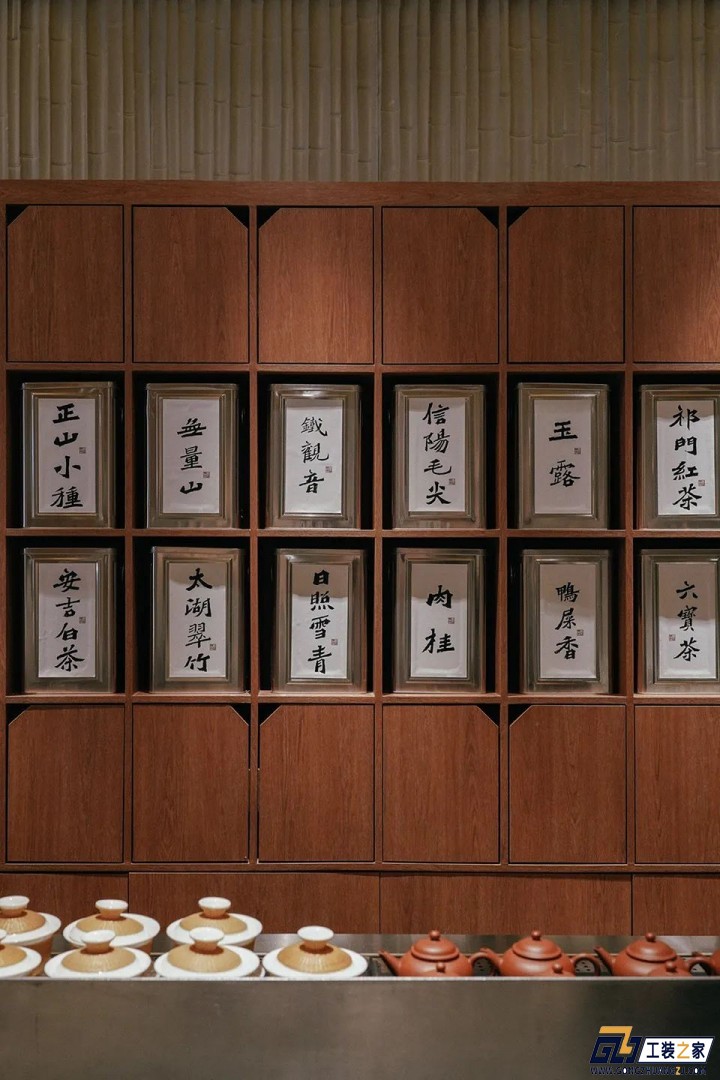 正山小種
無量山
鐵觀音
信陽毛尖
玉露
祁門紅茶
安吉白茶
太湖翠竹
日照雪青
肉桂
鴨屎香
六寶茶
工装之家
WWW.GONGZHUANGZJ.COM